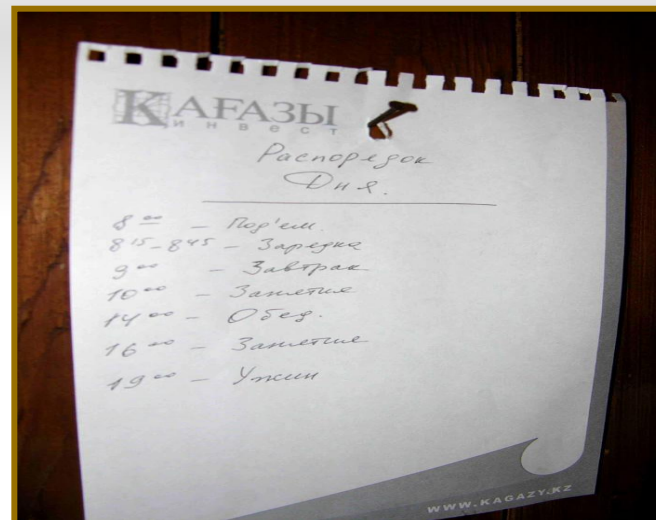 ҚАҒАЗЫ
ИНВЕСТ
Распорядок
Дня.
8⁰⁰ – Под'ем.
8¹⁵-8⁴⁵ – Зарядка
9⁰⁰ – Завтрак
10⁰⁰ – Занятие
14⁰⁰ – Обед.
16⁰⁰ – Занятие
19⁰⁰ – Ужин
WWW.KAGAZY.KZ